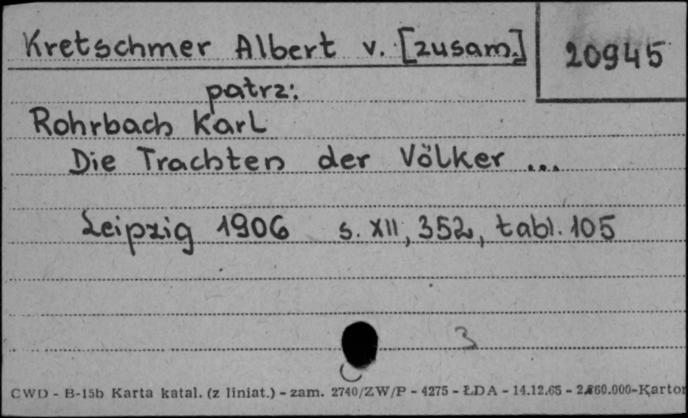 Kretschmer Albert v. [zusam.]
20945
patrz:
Rohrbach Karl
Die Trachten der Völker ...
Leipzig 1906 s. XII, 352, tabl. 105
3
CWD - B-15b Karta katal. (z liniat.) - zam. 2740/ZW/P - 4275 - ŁDA - 14.12.65 - 2.860.000-Karton